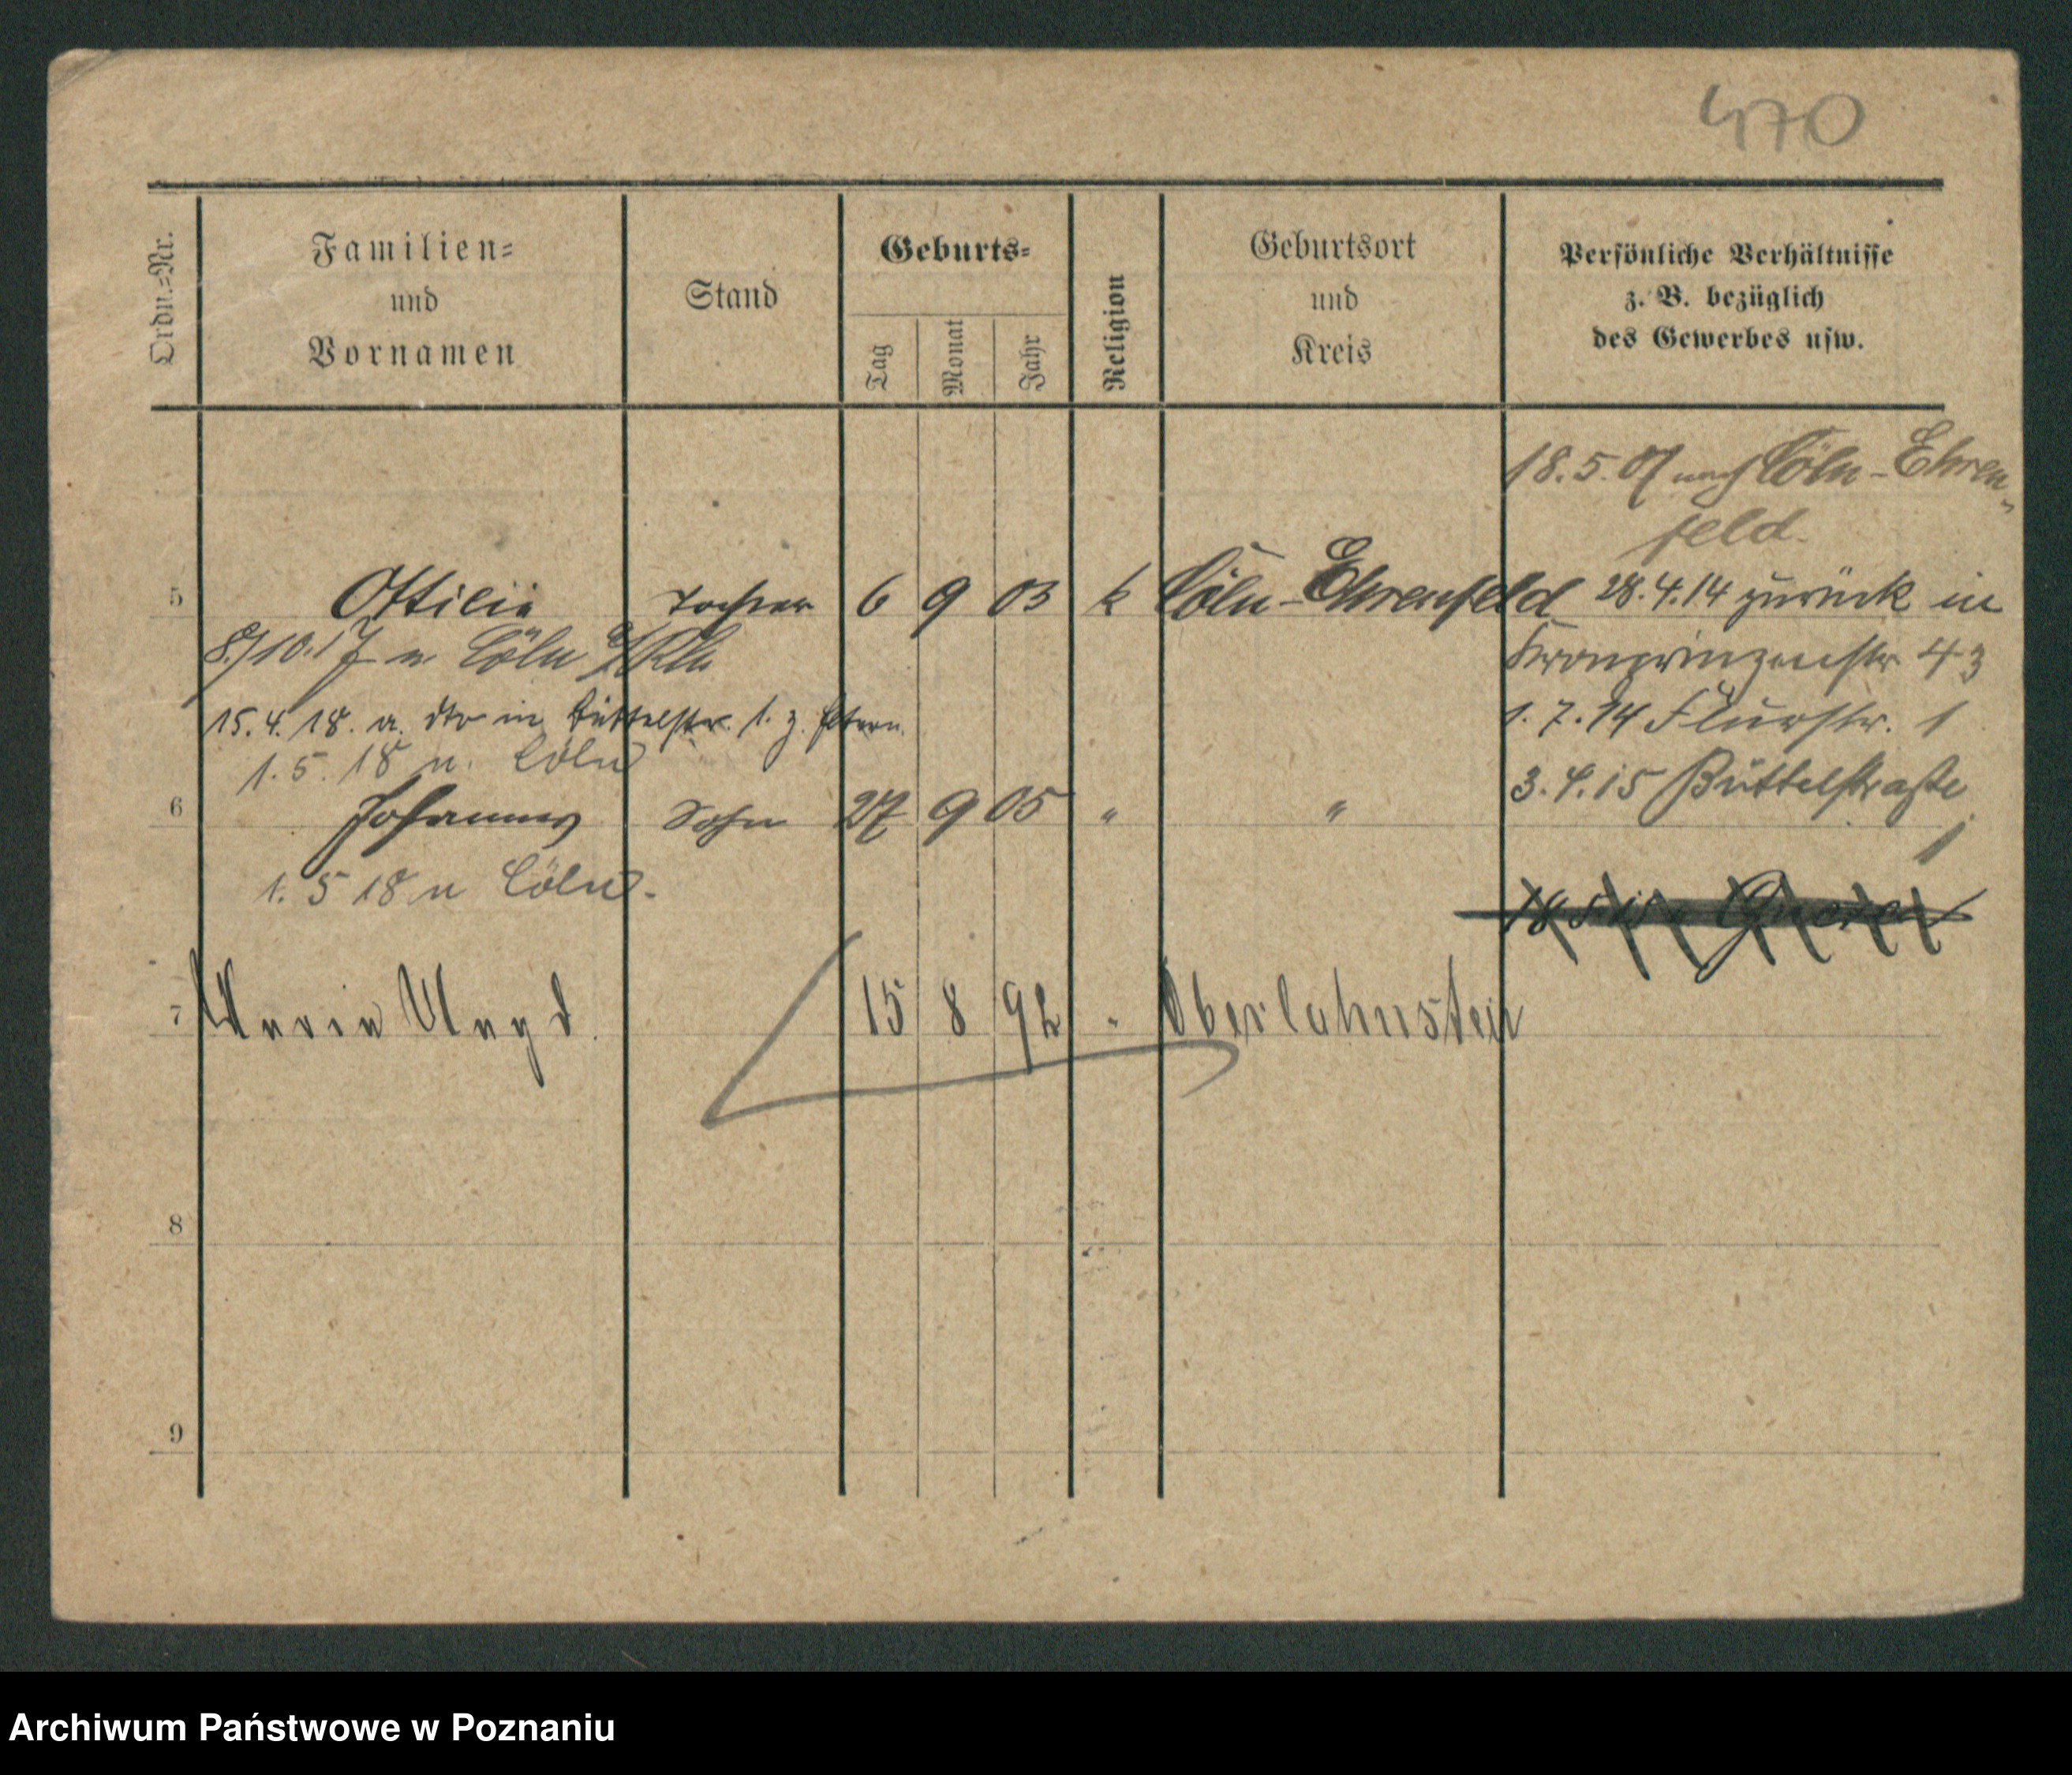 470
Ordn.=Nr.
Familien=
und
Vornamen
Stand
Geburts=
Tag
Monat
Jahr
Religion
Geburtsort
und
Kreis
Persönliche Verhältnisse
z. B. bezüglich
des Gewerbes usw.
18.5.07 nach Cöln-Ehren-
feld.
5 Ottilie Tochter 6 9 03 k Cöln-Ehrenfeld 28.4.14 zurück in
8/10.17 n Cöln a/Rh. Kronprinzenstr 43
15.4.18. a. dto in Büttelstr. 1. z. Eltern. 1.7.14 Flurstr. 1
1.5.18 n. Cöln 3.4.15 Büttelstraße
6 Johannes Sohn 27 9 05 " " 1
1.5 18 n Cöln.
7 Maria 15 8 92 " Oberlahnstein
8
9
Archiwum Państwowe w Poznaniu